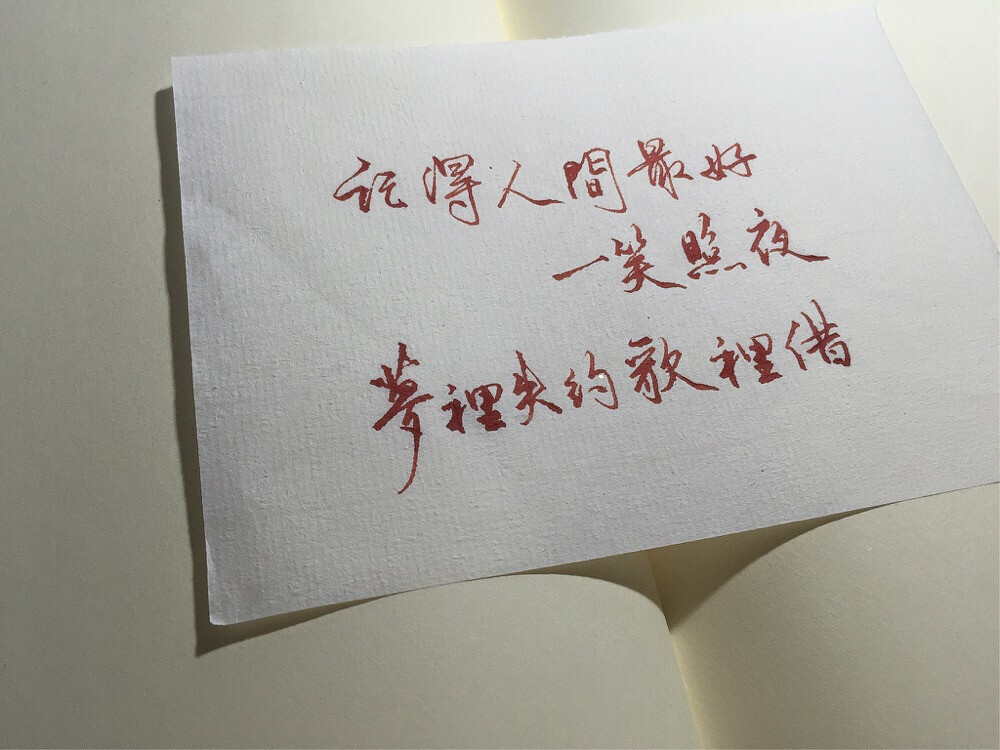 记得人間最好
一笑照夜
夢裡失约歌裡借